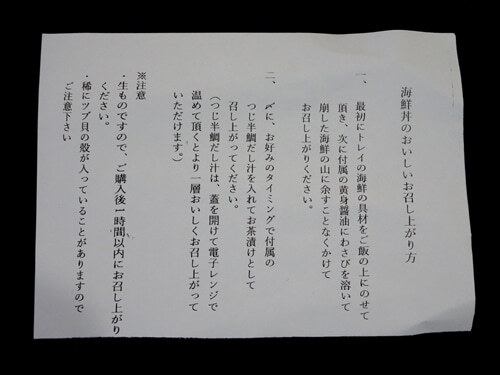 海鮮丼のおいしいお召し上がり方
一、最初にトレイの海鮮の具材をご飯の上にのせて
頂き、次に付属の黄身醤油にわさびを溶いて
崩した海鮮の山に余すことなくかけて
お召し上がりください。
二、〆に、お好みのタイミングで付属の
つじ半鯛だし汁を入れてお茶漬けとして
召し上がってください。
（つじ半鯛だし汁は、蓋を開けて電子レンジで
温めて頂くとより一層おいしくお召し上がって
いただけます。）
※注意
・生ものですので、ご購入後一時間以内にお召し上がり
ください。
・稀にツブ貝の殻が入っていることがありますので
ご注意下さい